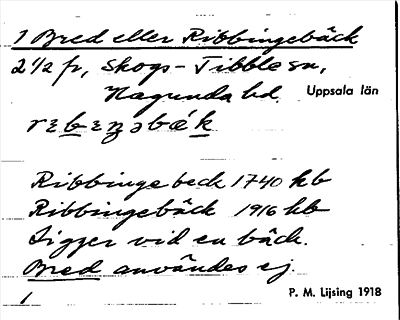 1 Bred eller Ribbingebäck
2 1/2 fr, Skogs-Tibble sn,
Hagunda hd. Uppsala län
Ribbinge beck 1740 kb
Ribbingebäck 1916 kb
Ligger vid en bäck.
Bred användes ej.
1
P. M. Lijsing 1918